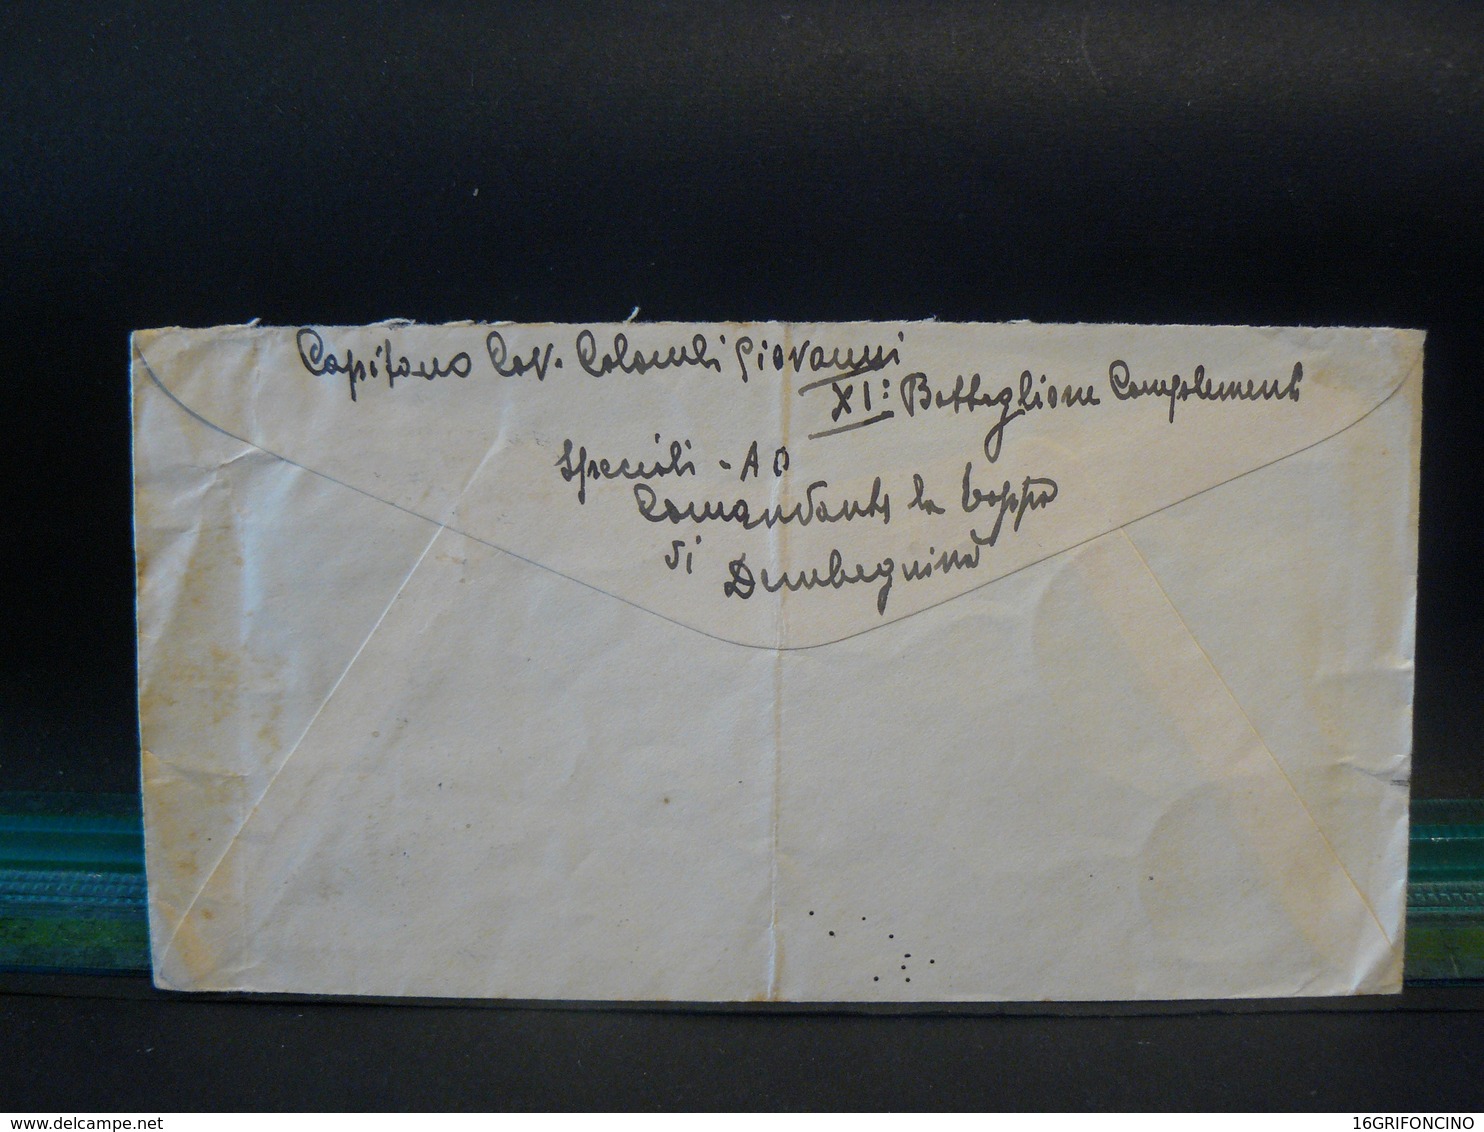 Capitano Cav. Colombi Giovanni
XI: Battaglione Complementi
Speciali - A O
Comandante la tappa
di Dembeguinà
delcampe.net
16GRIFONCINO